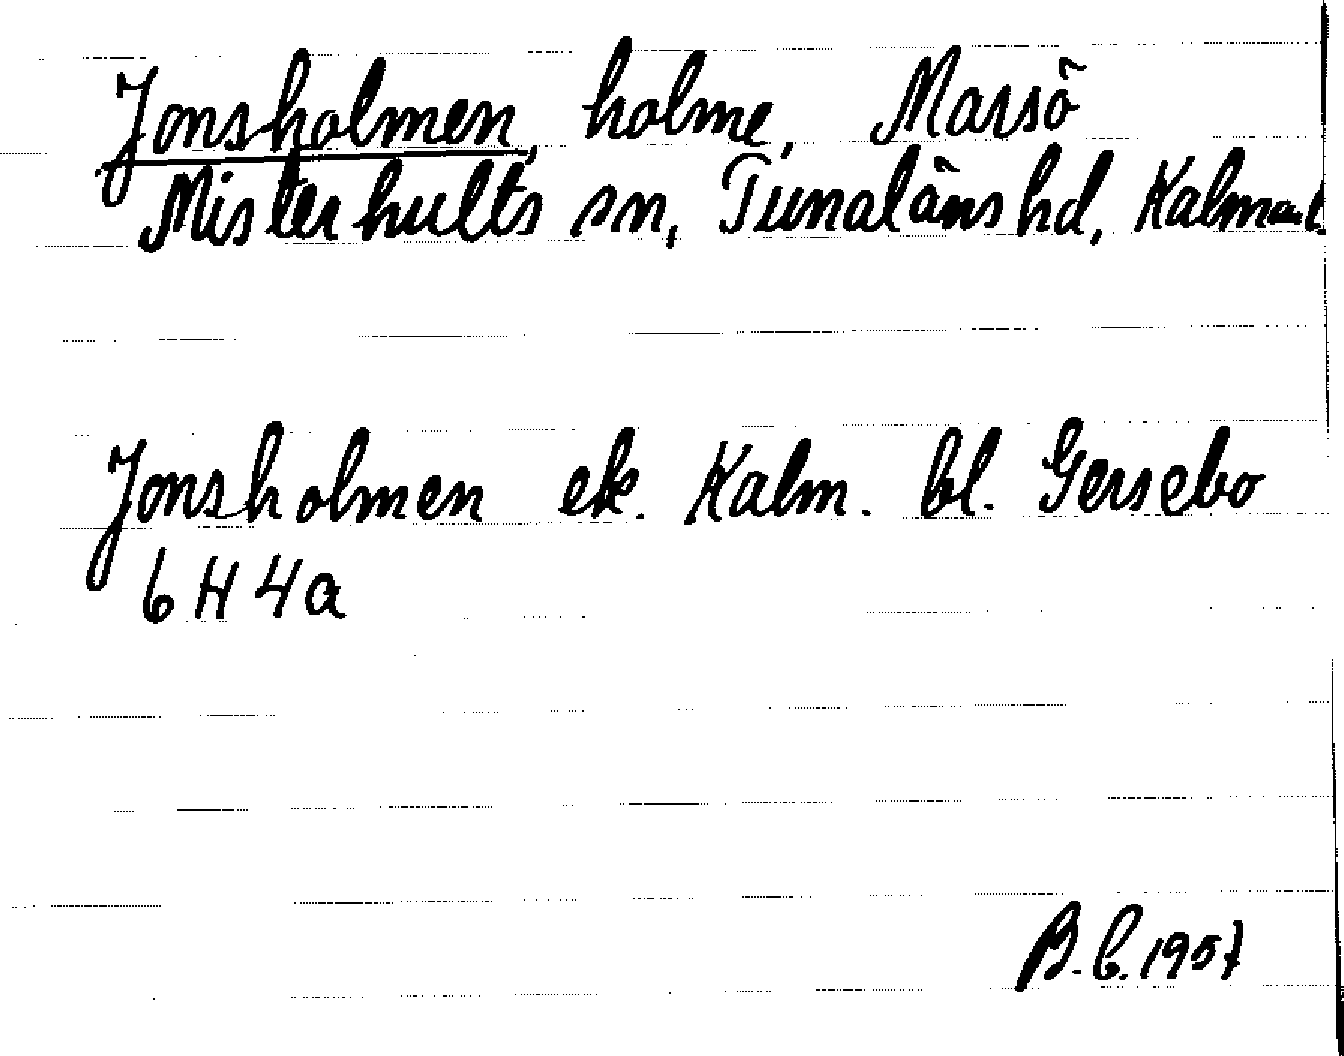 Jonsholmen, holme, Marsö
Misterhults sn, Tunaläns hd, Kalmar l.
Jonsholmen ek. Kalm. bl. Gersebo
6 H 4a
B.C. 1957